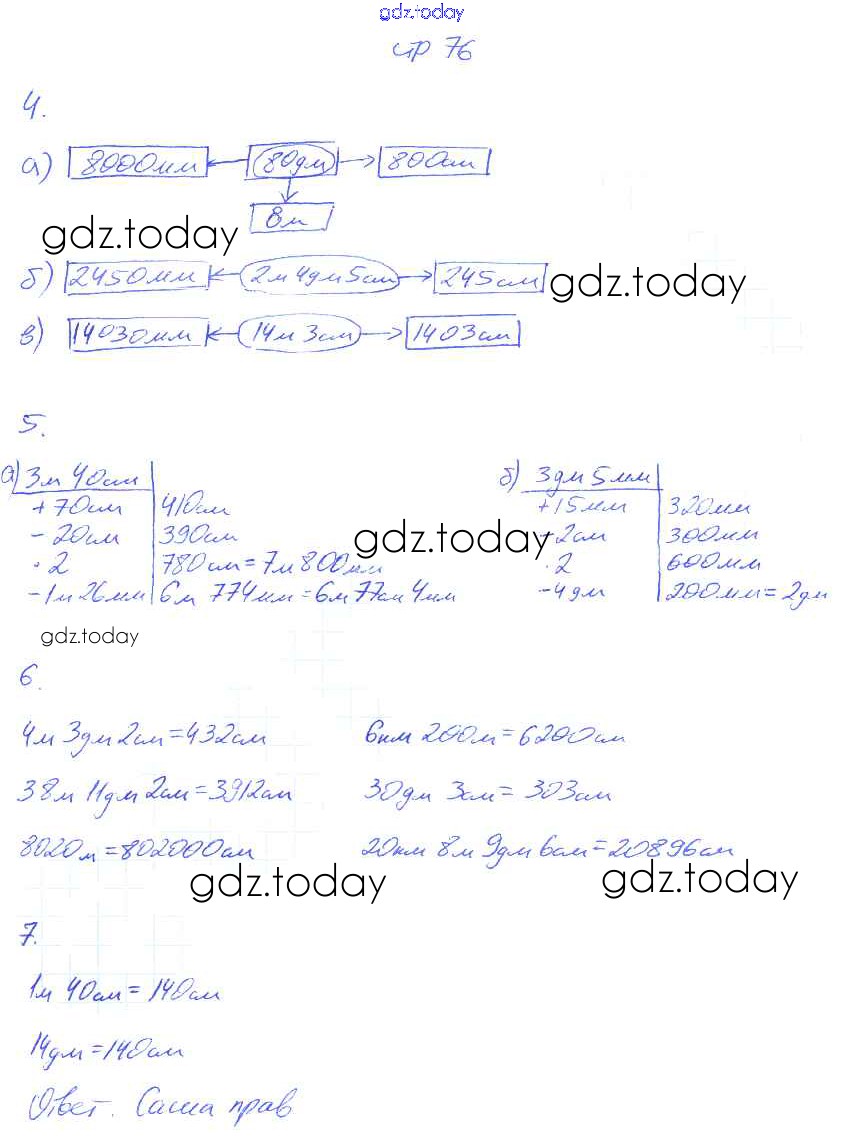 gdz.today
стр 76
4.
а) 8000мм ← 80дм → 800см
↓
8м
gdz.today
б) 2450мм ← 2м 4дм 5см → 245см gdz.today
в) 14030мм ← 14м 3см → 1403см
5.
а) 3м 40см
+ 70см 410см
- 20см 390см
· 2 780см = 7м 800мм
- 1м 26мм 6м 774мм = 6м 77см 4мм
gdz.today
б) 3дм 5мм
+ 15мм 320мм
- 2см 300мм
· 2 600мм
- 4дм 200мм = 2дм
gdz.today
6.
4м 3дм 2см = 432см 6км 200м = 6200см
38м 11дм 2см = 3912см 30дм 3см = 303см
8020м = 802000см 20км 8м 9дм 6см = 20896см
gdz.today gdz.today
7.
1м 40см = 140см
14дм = 140см
Ответ. Саша прав